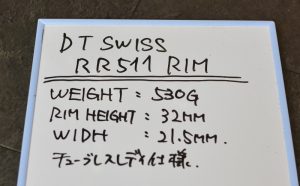 DT SWISS
RR511 RIM
WEIGHT : 530G
RIM HEIGHT : 32MM
WIDH : 21.5MM.
チューブレスレディ仕様.